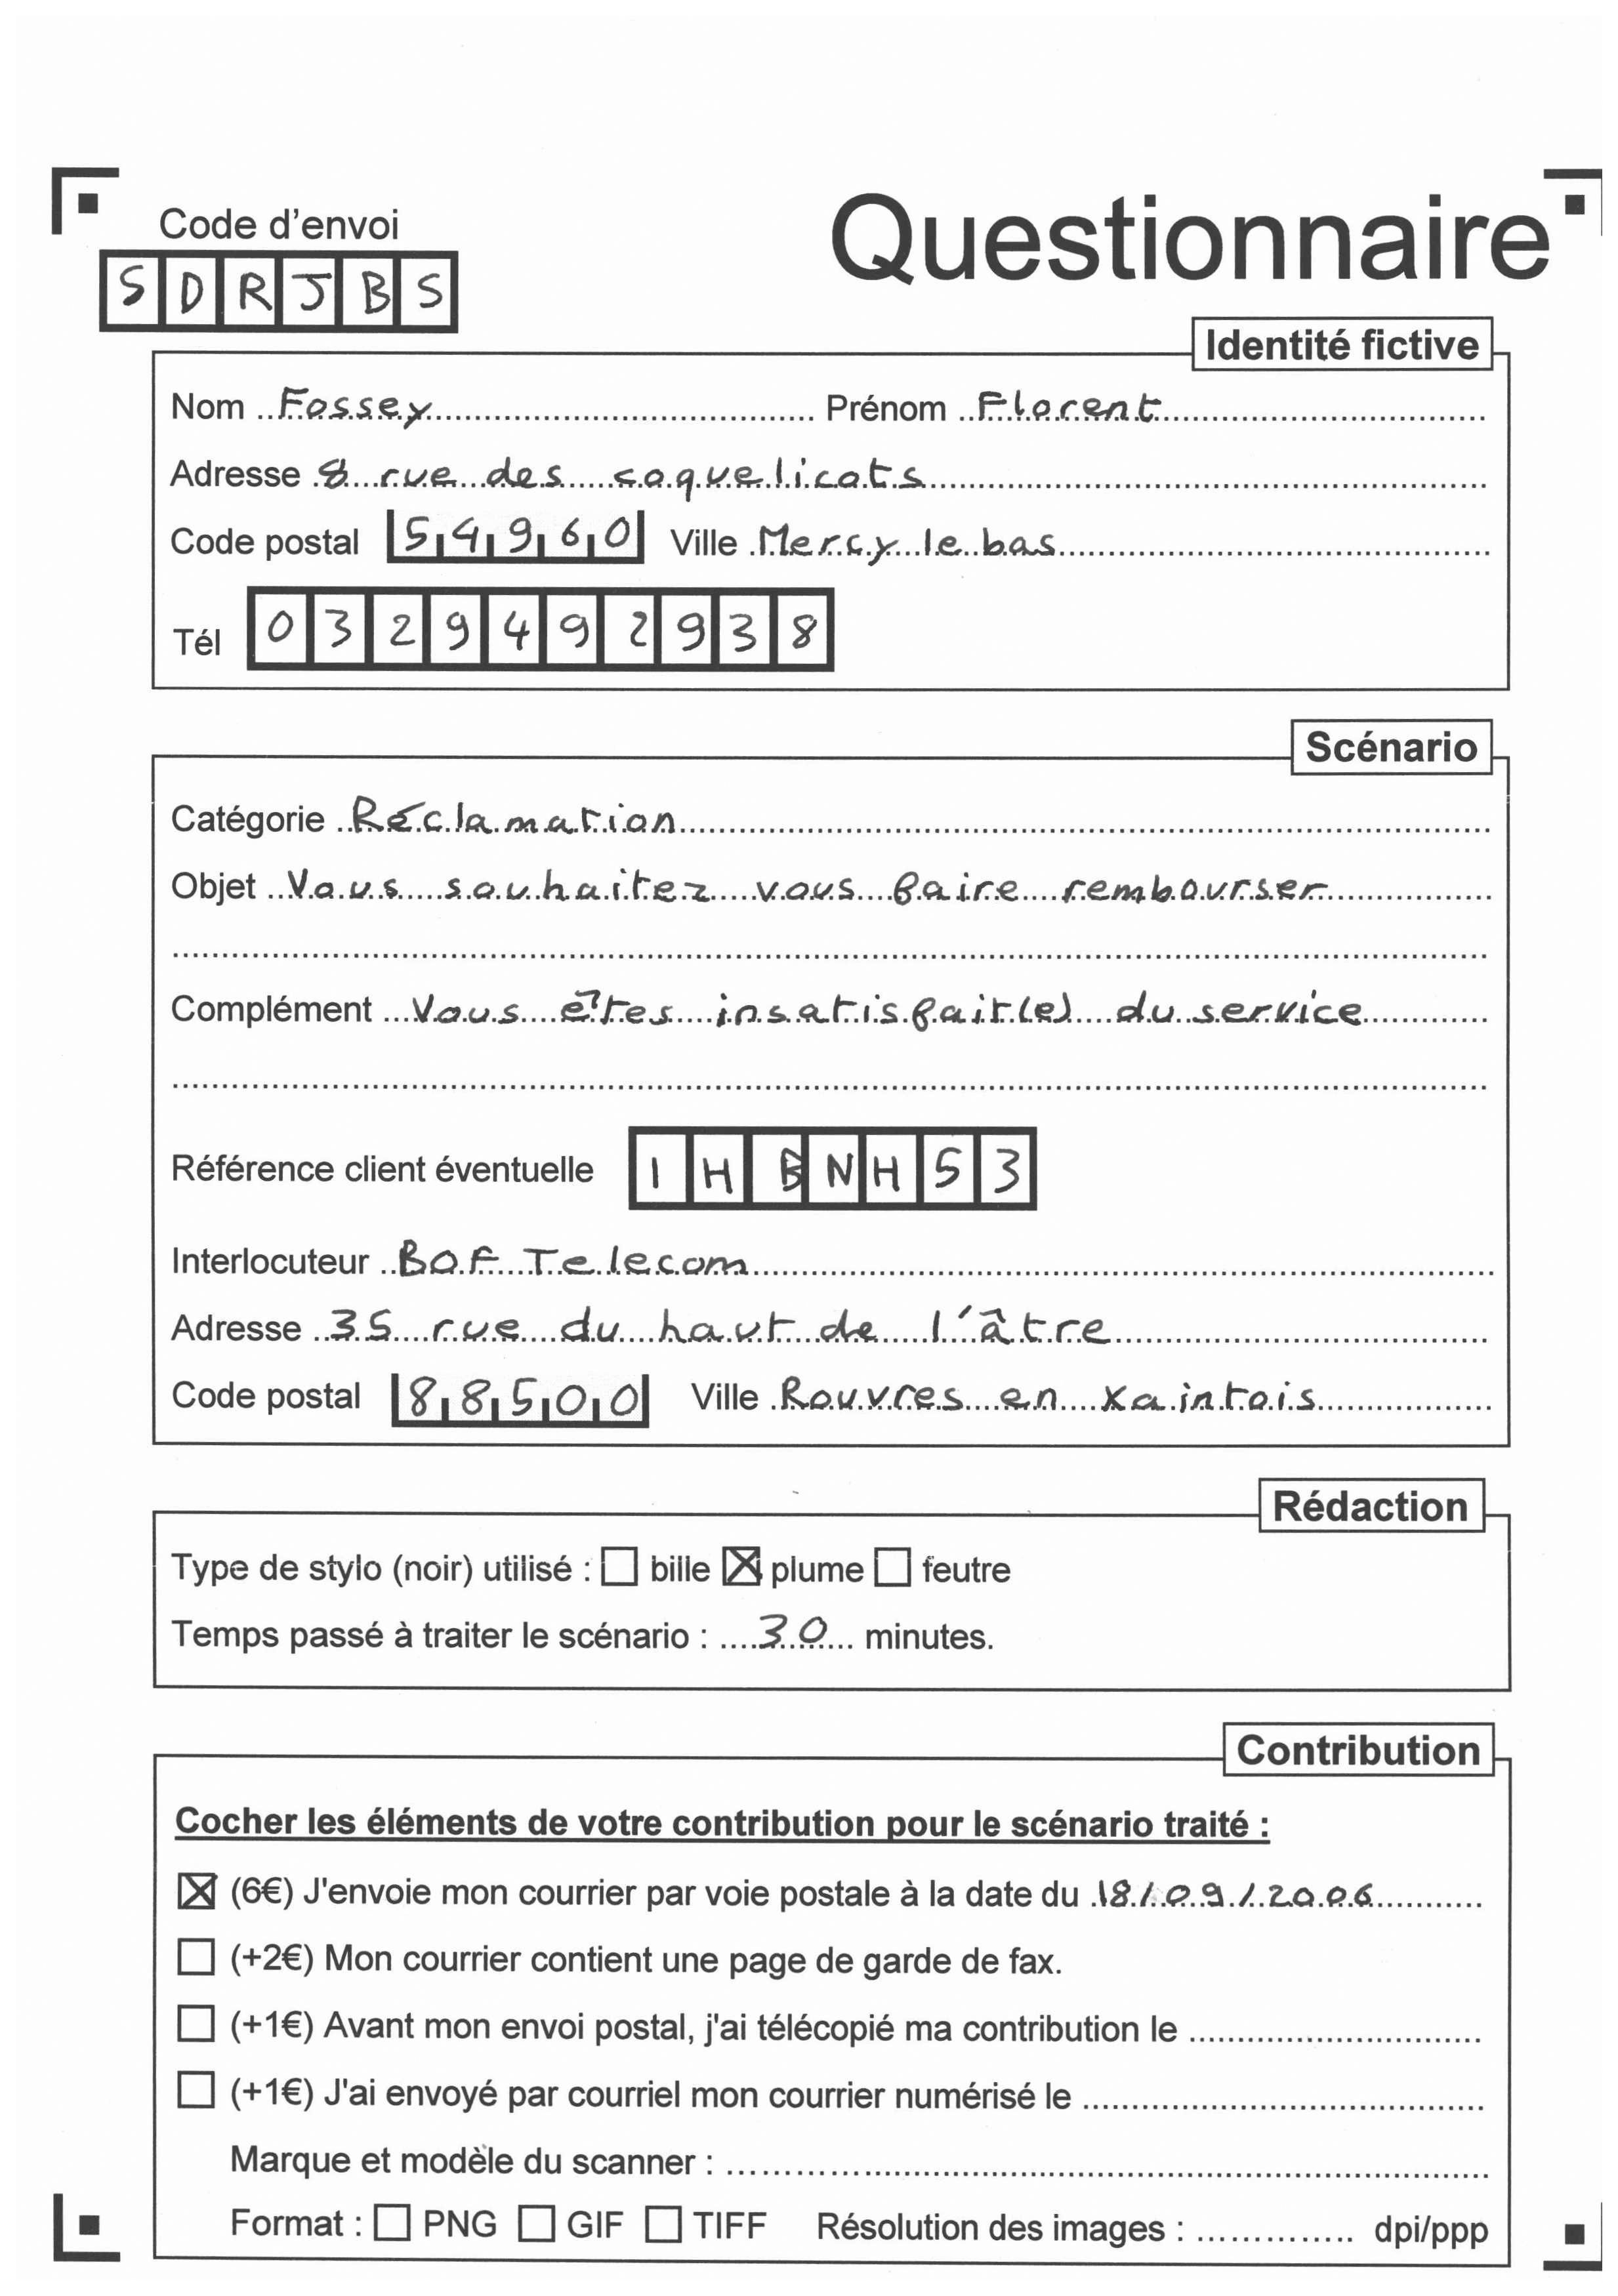 Code d'envoi
Questionnaire
SDRJBS
Identité fictive
Nom Fossey Prénom Florent
Adresse 8 rue des coquelicots
Code postal 54960 Ville Mercy le bas
Tél 0329492938
Scénario
Catégorie Réclamation
Objet Vous souhaitez vous faire rembourser
Complément Vous êtes insatisfait(e) du service
Référence client éventuelle IHBNH53
Interlocuteur BOF Telecom
Adresse 35 rue du haut de l'âtre
Code postal 88500 Ville Rouvres en Xaintois
Rédaction
Type de stylo (noir) utilisé : ☐ bille ☒ plume ☐ feutre
Temps passé à traiter le scénario : 30 minutes.
Contribution
Cocher les éléments de votre contribution pour le scénario traité :
☒ (6€) J'envoie mon courrier par voie postale à la date du 18/09/2006
☐ (+2€) Mon courrier contient une page de garde de fax.
☐ (+1€) Avant mon envoi postal, j'ai télécopié ma contribution le
☐ (+1€) J'ai envoyé par courriel mon courrier numérisé le
Marque et modèle du scanner :
Format : ☐ PNG ☐ GIF ☐ TIFF Résolution des images : dpi/ppp